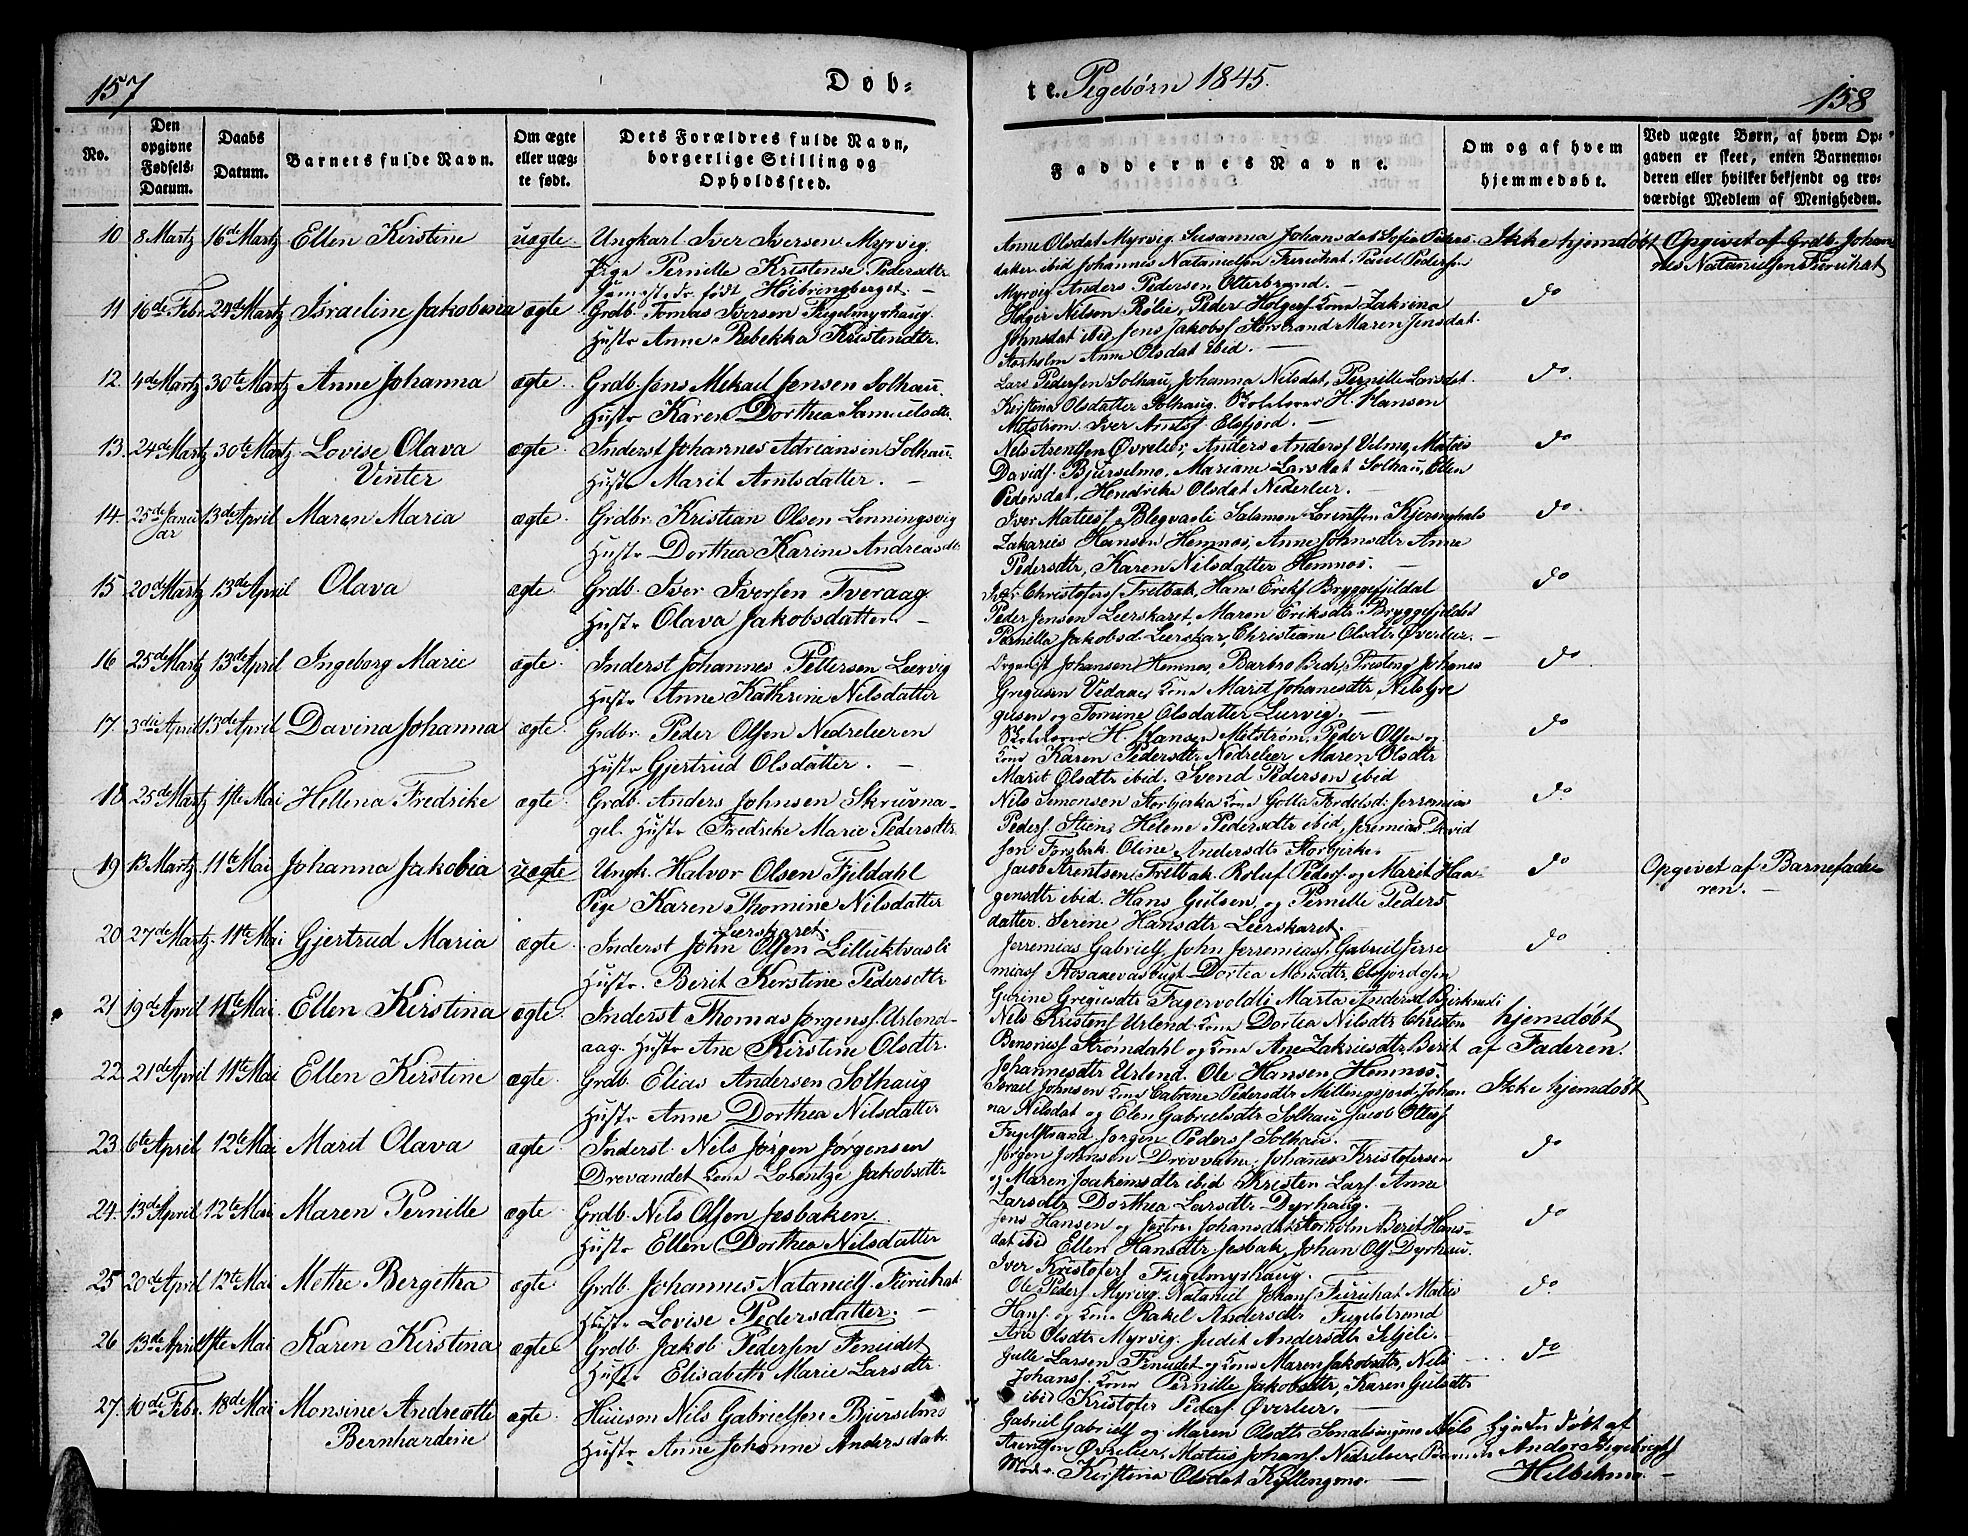 157
Døb-
te. Pigebørn 1845.
158
No.
Den opgivne Fødsels-Datum.
Daabs Datum.
Barnets fulde Navn.
Om ægte eller uæg-te født.
Dets Forældres fulde Navn, borgerlige Stilling og Opholdssted.
Faddernes Navne.
Om og af hvem hjemmedøbt.
Ved uægte Børn, af hvem Op-gaven er skeet, enten Barnemo-deren eller hvilket bekjendt og tro-værdigt Medlem af Menigheden.
10 8 Martz 16de Martz Ellen Kirstine uægte Ungkarl Iver Iversen Myrvig.
Pige Pernille Kristense Pedersdtr
født Höibringberget.
Anne Olsdat Myrvig. Susanna Johansdat Sofia Peders-
datter ibid Johannes Natanielsen Povel Pedersen
Myrvig. Anders Pedersen Otterbrand.
Ikke hjemdøbt
Opgivet af Grdb. Johan-
nes Natanielsen
11 16de Febr. 24de Martz Israeline Jakobena ægte Grdb. Tomas Iversen Fugelmyrhaug.
Hustr Anne Rebekka Kristendtr.
Holger Nilsen Rölie, Peder Holgers. Kone Zakrina
Johnsdat ibid Jens Jakobs. Storstrand Maren Jensdat.
Storholm Anne Olsdat ibid.
do
12. 4de Martz 30te Martz Anne Johanna ægte Grdb. Jens Mekael Jensen Solhau
Hustr Karen Dorthea Samuelsdtr.
Lars Pedersen Solhau, Johanna Nilsdat, Pernille Larsdat.
Kirstina Olsdatter Solhaug. Skolelærer H. Hansen
Mitström. Iver Elsfjord.
do
13. 24de Martz 30te Martz Lovise Olava ægte Inderst Johannes Adriansen Solhau.
Vinter
Hustr Marit Arntsdatter.
Nils Arentsen Øvreleir, Anders Anders. Matias
Davids. Bjurselmo. Mariane Larsdat Solhau, Ellen
Pedersdat, Hendrike Olsdat Nederleir.
do
14 25de Janu-ar 13de April Maren Maria ægte Grdbr. Kristian Olsen Lenningsvig
Hustr Dorthea Karine Andreasdtr
Iver Maties. Blegvasli Salamon Lorentsen Kjerringhals
Zakarias Hansen Hemnes, Anne Johnsdtr Anne
Pedersdtr, Karen Nilsdatter Hemnes.
do
15 20de Martz 13de April Olava ægte Grdb. Iver Iversen Tveraag
Hustr Olava Jakobsdatter.
Iver Christofers. Fretbak, Hans Ereks. Bryggefjeldal
Peder Jensen Leerskaret, Maren Eriksdtr Bryggefjeldet
Pernilla Jakobsd. Leerskar, Christiane Olsdtr Øverleir.
do
16 25de Martz 13de April Ingeborg Marie ægte Inderst Johannes Pettersen Leervig
Hustr Anne Kathrine Nilsdatter
Organist Johansen Hemnes, Barbro Bech, Johanes
Gregusen Vedaae Kone Marit Johanesdtr, Nils Gre-
gusen og Tomine Olsdatter Lurvig.
do
17. 3die April 13de April Davina Johanna ægte. Grdbr. Peder Olsen Nedreleiren
Hustr Gjertrud Olsdatter.
Skolelærer H. Hansen Mitström. Peder Olsen og
Kone Karen Pedersdtr Nedreleir Maren Olsdtr
Marit Olsdtr ibid. Svend Pedersen ibid
do
18 25de Martz 1ste Mai Hellena Fredrike ægte Grdb. Anders Johnsen Skruvna-
gel. Hustr Fredrike Marie Pedersdtr
Nils Simonsen Storbjerka Kone Jeremias
Peders. Stien, Helene Pedersdtr ibid, Jeremias David-
sen Forsbak. Oline Andersdtr Storbjerke.
do
19 13 Martz 11te Mai Johanna Jakobia uægte Ungk. Halvor Olsen Fjeldahl
Pige Karen Thomine Nilsdatter
Leerskaret.
Jacob Arentsen Fretbak. Roluf Peders. og Marit Haa-
gensdtr ibid. Hans Gulsen og Pernille Peders-
datter. Serine Hansdtr Leerskaret.
do
Opgivet af Barnefade-
ren.
20 27de Martz 11te Mai Gjertrud Maria ægte Inderst John Olsen Lilluktvasli
Hustr. Berit Kirstine Pedersdtr
Jerremias Gabriels. John Jerremias. Gabriel Jerre-
mias. Dortea Monsdtr, Elsfjordosen
Gurine Greguesdtr Fagervoldli Marta Andersd.
do
21 19de April 11te Mai Ellen Kirstina ægte Inderst Thomas Jørgens. Urland-
aag. Hustr Ane Kirstine Olsdtr.
Nils Kristens. Urlend. Kone Dortea Nilsdtr Christen
Benonies. Strømdahl og Kone Ane Zakriesdtr, Berit
Johannesdtr Urlend. Ole Hansen Hemnes.
hjemdøbt
af Faderen.
22 21de April 11te Mai Ellen Kirstine ægte. Grdb. Elias Andersen Solhaug
Hustr Anne Dorthea Nilsdatter
Israel Johnsen Kone Catrine Pedersdtr Millingsjord, Johan-
na Nilsdat og Elen Gabrielsdtr Solhau Jacob
Fugelstrand Jørgen Peders. Solhau.
Ikke hjemdøbt
23 6te April 12te Mai Marit Olava ægte. Inderst. Nils Jørgen Jørgensen
Drevandet Kone Lorentze Jakobsdtr
Jørgen Johnsen Drevvatne. Johannes Kristofersen
og Maren Joakemsdtr ibid Kristen Lars. Anne
Larsdtr, Dorthea Larsdtr Dyrhaug.
do
24. 13de April 12te Mai Maren Pernille ægte Grdb. Nils Olsen Jesbaken
Hustr Ellen Dorthea Nilsdatter
Jens Hansen og Johansdat Storholm Berit Hans-
dat ibid Ellen Hansdtr Jesbak, Johan Ols. Dyrhau.
Iver Kristofers. Fugelmyrhaug.
do
25 20de April 12te Mai Methe Bergitha ægte Grdb. Johannes Nataniels.
Hustr Lovise Pedersdatter.
Ole Peders. Myrvig. Nataniel Johans. Matis
Hans. og Kone Rakel Andersdtr Fugelstrand
Ane Olsdtr Myrvig. Judit Andersdtr
do
26 13de April 1ste Mai Karen Kirstina ægte Grdb. Jakob Pedersen Finudet
Hustr Elisabeth Marie Larsdtr.
Larsen Finudet og Kone Maren Jakobsdtr, Nils
Johans. Kone Pernille Jakobsdtr, Karen Gulsdtr
ibid Kristofer Peders. Øverleir.
do
27. 10de Febr. 18de Mai Monsine Andreatte ægte Huusm Nils Gabrielsen Bjurselmo
Bernhardine
Hustr Anne Johanne Andersdat.
Gabriel Gabriels. og Maren Olsdtr Nils
Arentsen Øvreleir, Matias Johans. Nedreleir,
Kirstina Olsdat Kyllingmo.
døbt af